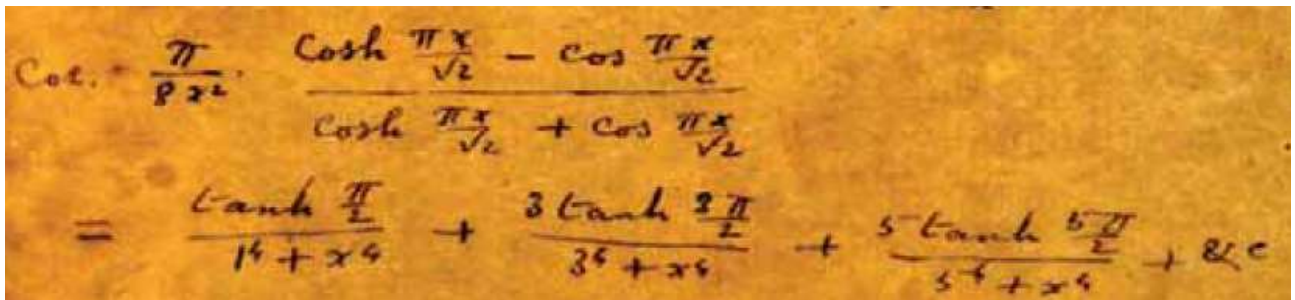 Cor. π/8x² · (Cosh πx/√2 − cos πx/√2)/(Cosh πx/√2 + Cos πx/√2)
= (tanh π/2)/(1⁴ + x⁴) + (3 tanh 3π/2)/(3⁴ + x⁴) + (5 tanh 5π/2)/(5⁴ + x⁴) + &c